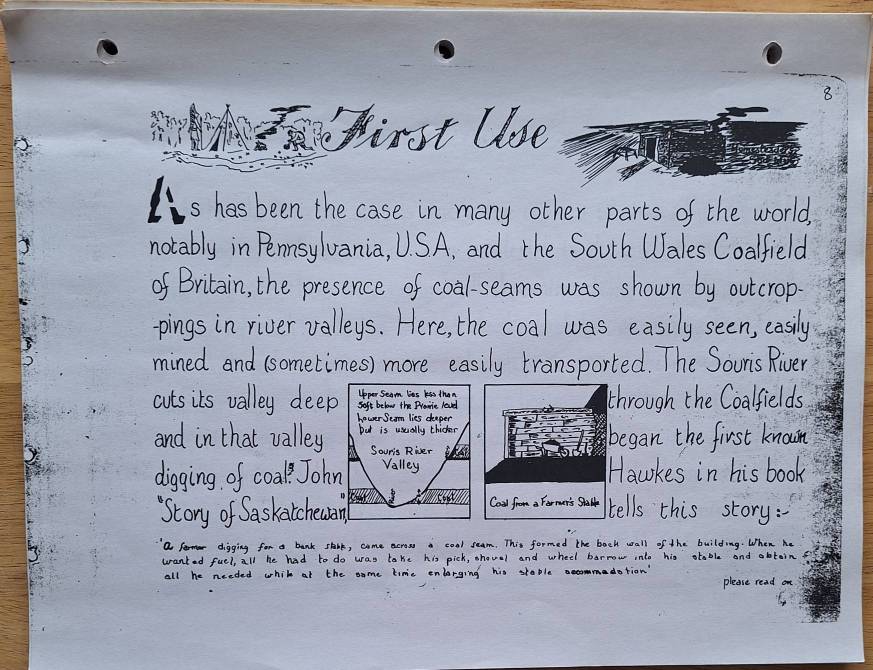 8
First Use
As has been the case in many other parts of the world,
notably in Pennsylvania, U.S.A, and the South Wales Coalfield
of Britain, the presence of coal-seams was shown by outcrop-
-pings in river valleys. Here, the coal was easily seen, easily
mined and (sometimes) more easily transported. The Souris River
cuts its valley deep through the Coalfields
and in that valley began the first known
digging of coal. John Hawkes in his book
"Story of Saskatchewan," tells this story:-
Upper Seam lies less than
50ft below the Prairie level
Lower Seam lies deeper
but is usually thicker
Souris River
Valley
Coal
Coal
Coal from a Farmer's Stable
'A farmer digging for a bank stable, came across a coal seam. This formed the back wall of the building. When he
wanted fuel, all he had to do was take his pick, shovel and wheel barrow into his stable and obtain
all he needed while at the same time enlarging his stable accommodation'
please read on